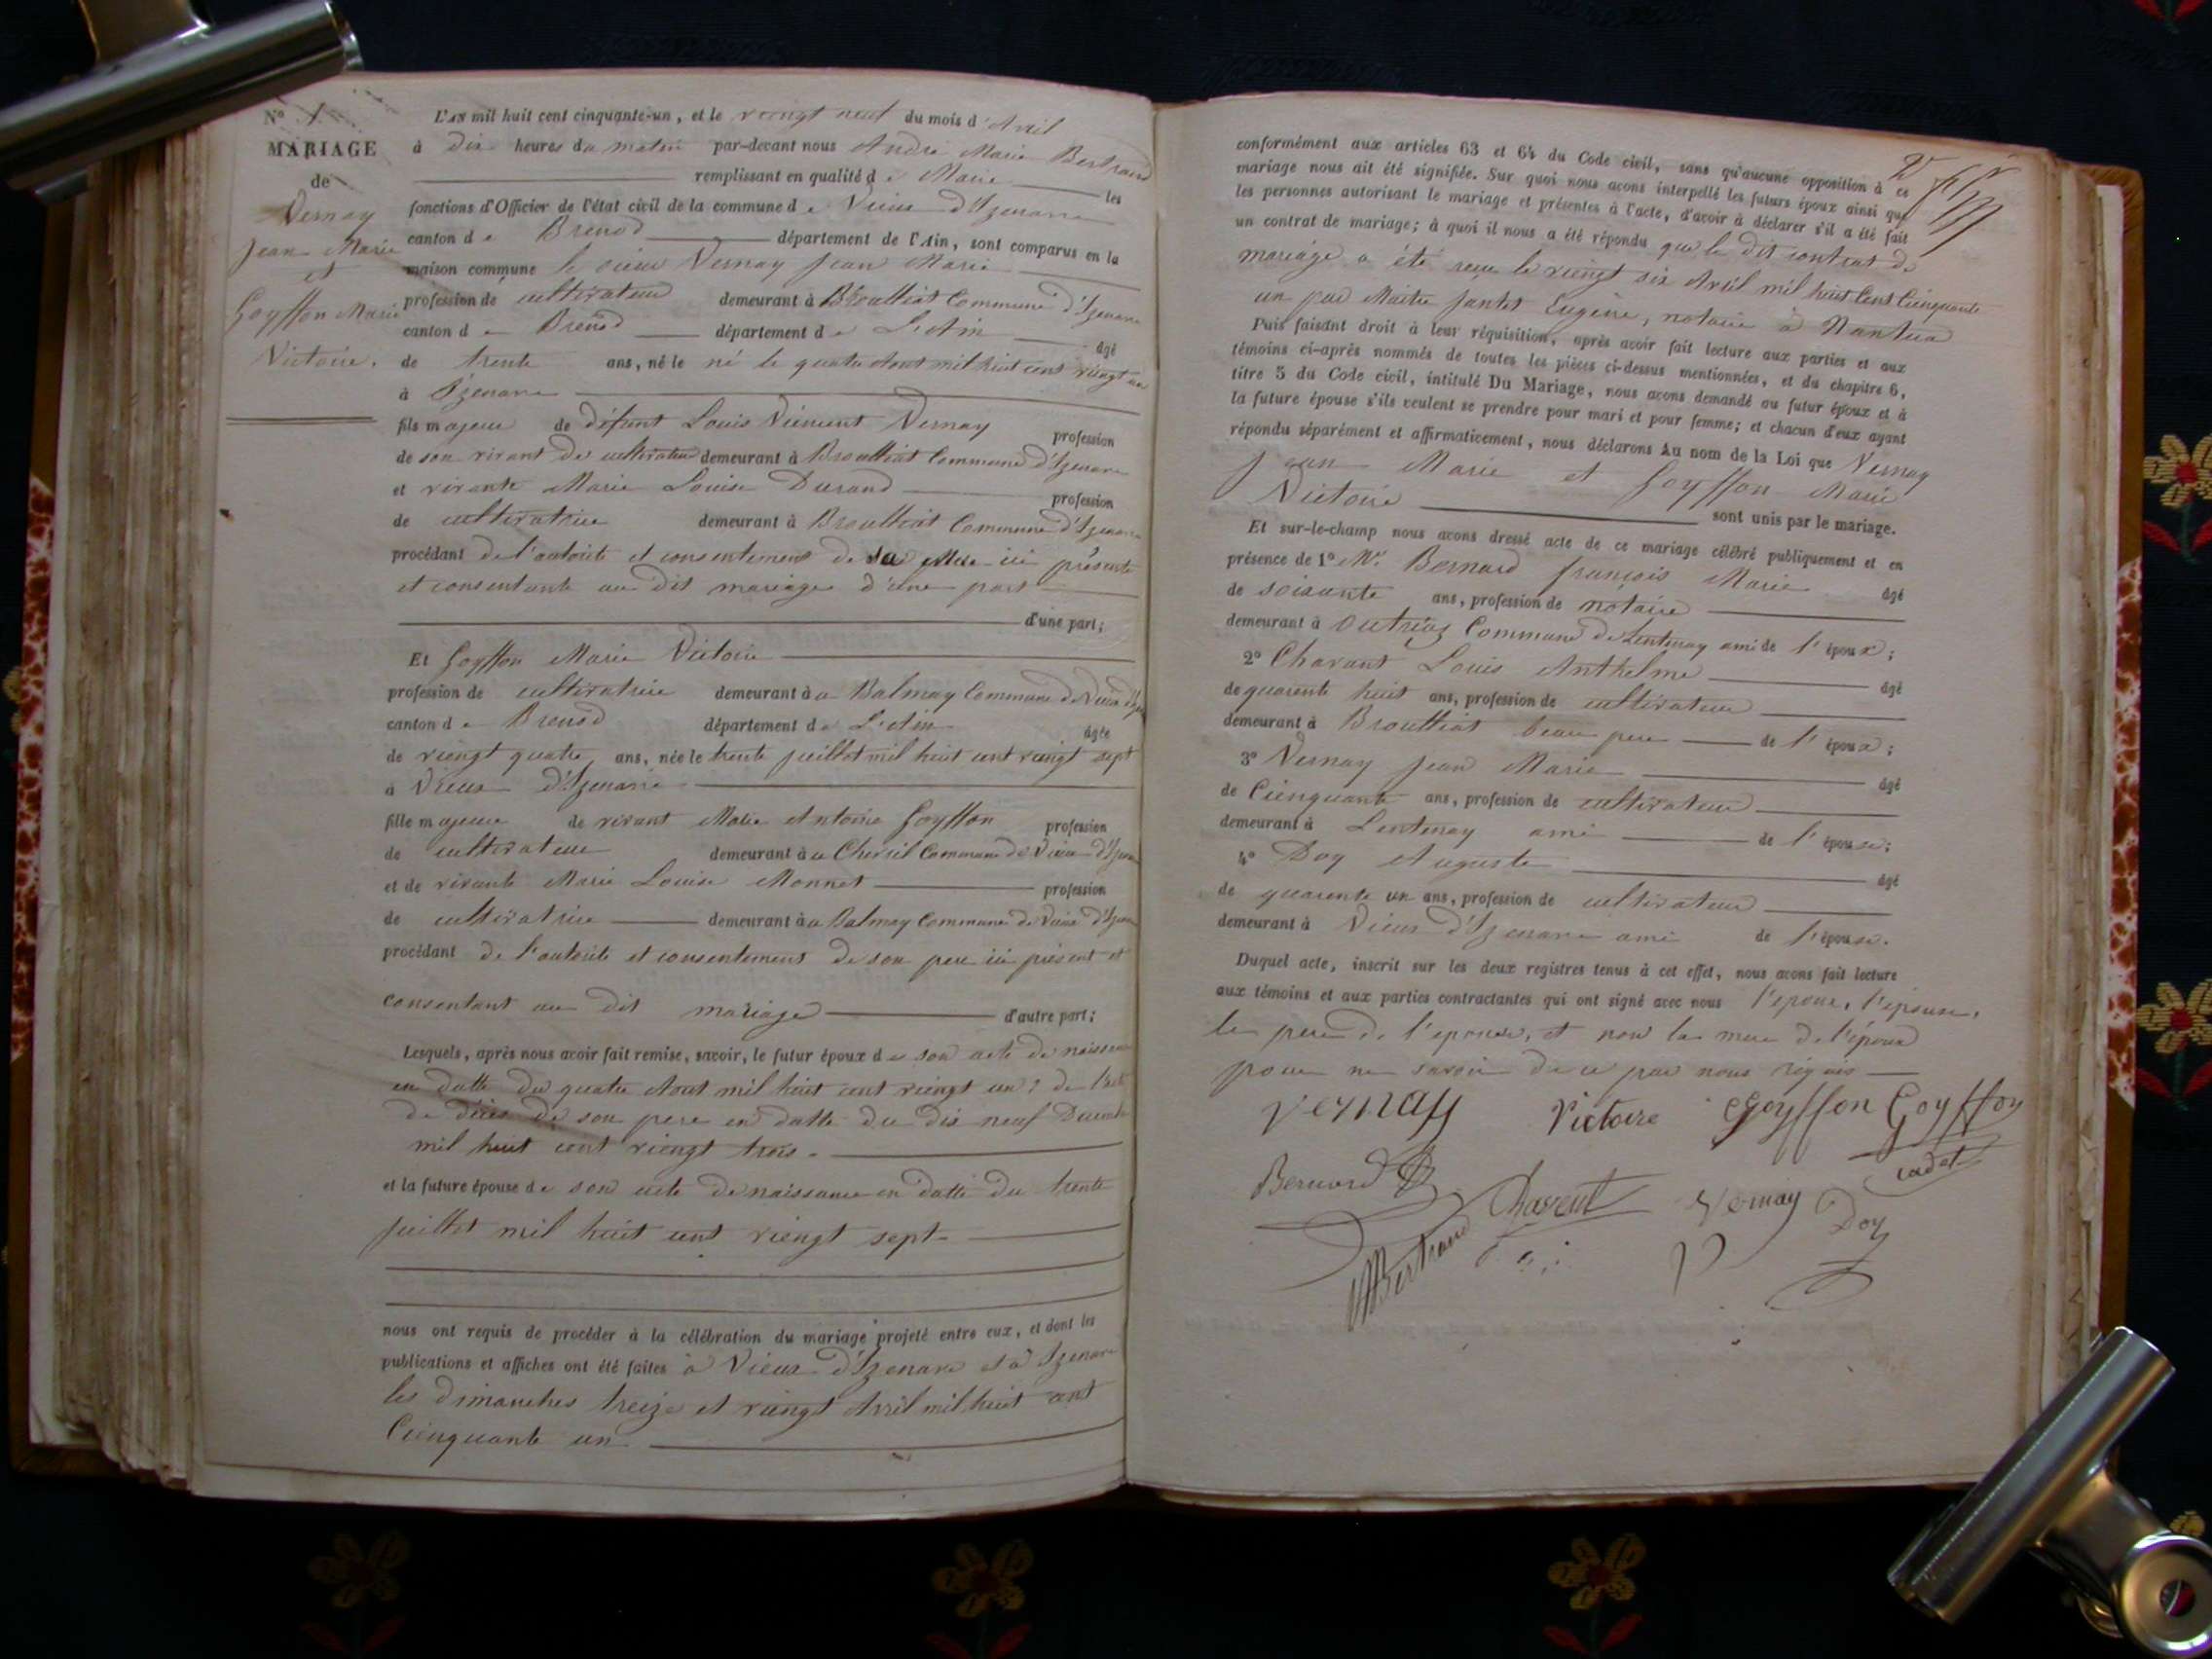 N° 1
MARIAGE
de
Vernay
Jean Marie
et
Goyffon Marie
Victoire.
L'AN mil huit cent cinquante-un, et le viengt neuf du mois d'Avril
à dix heures du matin par-devant nous André Marie Bertrand
remplissant en qualité de Maire les
fonctions d'Officier de l'état civil de la commune de Vieux d'Izenave
canton de Brenod département de l'Ain, sont comparus en la
maison commune le sieur Vernay Jean Marie
profession de cultivateur demeurant à Broultiat Commune d'Izenave
canton de Brenod département de L'Ain âgé
de trente ans, né le né le quatre Aout mil huit cent viengt un
à Izenave
fils majeur de défunt Louis Vincent Vernay profession
de son vivant de cultivateur demeurant à Broultiat Commune d'Izenave
et vivante Marie Louise Durand profession
de cultivatrice demeurant à Broultiat Commune d'Izenave
procédant de l'autorité et consentement de sa Mère ici présente
et consentante au dit mariage d'une part
d'une part;
Et Goyffon Marie Victoire
profession de cultivatrice demeurant à a Balmay Commune de Vieux d'Ize
canton de Brenod département de L'Ain âgée
de viengt quatre ans, née le trente juillet mil huit cent viengt sept
à Vieux d'Izenave
fille majeure de vivant Marie Antoine Goyffon profession
de cultivateur demeurant à a Chevril Commune de Vieux d'Izenave
et de vivante Marie Louise Monnet profession
de cultivatrice demeurant à a Balmay Commune de Vieux d'Izenave
procédant de l'autorité et consentement de son pere ici présent et
consentant au dit mariage d'autre part;
Lesquels, après nous avoir fait remise, savoir, le futur époux de son acte de naissance
en datte du quatre Aout mil huit cent viengt un; de l'acte
de décès de son pere en datte du dix neuf Decembre
mil huit cent viengt trois.
et la future épouse de son acte de naissance en datte du trente
juillet mil huit cent viengt sept
nous ont requis de procéder à la célébration du mariage projeté entre eux, et dont les
publications et affiches ont été faites à Vieux d'Izenave et à Izenave
les dimanches treize et viengt Avril mil huit cent
Cienquante un
conformément aux articles 63 et 64 du Code civil, sans qu'aucune opposition à ce
mariage nous ait été signifiée. Sur quoi nous avons interpellé les futurs époux ainsi que
les personnes autorisant le mariage et présentes à l'acte, d'avoir à déclarer s'il a été fait
un contrat de mariage; à quoi il nous a été répondu que le dit contrat de
mariage a été reçu le viengt six Avril mil huit Cent Cienquante
un par Maitre Jantet Eugène, notaire à Nantua
Puis faisant droit à leur réquisition, après avoir fait lecture aux parties et aux
témoins ci-après nommés de toutes les pièces ci-dessus mentionnées, et du chapitre 6,
titre 5 du Code civil, intitulé Du Mariage, nous avons demandé au futur époux et à
la future épouse s'ils veulent se prendre pour mari et pour femme; et chacun d'eux ayant
répondu séparément et affirmativement, nous déclarons Au nom de la Loi que Vernay
Jean Marie et Goyffon Marie
Victoire sont unis par le mariage.
Et sur-le-champ nous avons dressé acte de ce mariage célébré publiquement et en
présence de 1° Mr. Bernard françois Marie âgé
de soixante ans, profession de notaire
demeurant à Outriaz Commune de Lentenay ami de l'époux;
2° Chavant Louis Anthelme âgé
de quarente huit ans, profession de cultivateur
demeurant à Broultiat beau pere de l'époux;
3° Vernay Jean Marie âgé
de Cienquante ans, profession de cultivateur
demeurant à Lentenay ami de l'épouse;
4° Doy Auguste âgé
de quarente un ans, profession de cultivateur
demeurant à Vieux d'Izenave ami de l'épouse.
Duquel acte, inscrit sur les deux registres tenus à cet effet, nous avons fait lecture
aux témoins et aux parties contractantes qui ont signé avec nous l'epoux, l'epouse,
le pere de l'epouse, et non la mere de l'époux
pour ne savoir de ce par nous réquis
Vernay Victoire Goyffon Goyffon
cadet
Bernard Chavent Vernay Doy
Bertrand